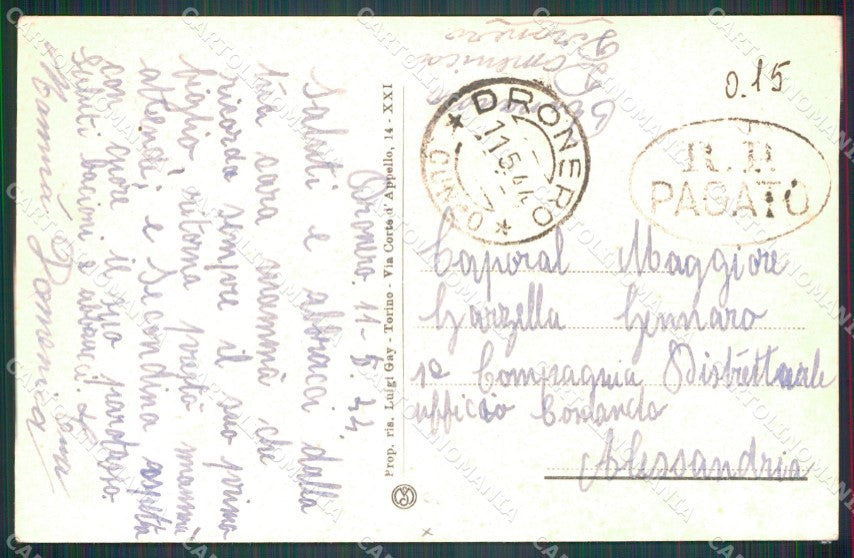 Dronero 11-5.44
Saluti e abbracci dalla
tua cara mammà che
ricorda sempre il suo primo
figlio ritorna presto mammà
attende e Secondina aspetta
con ore il suo
Saluti bacioni e abbracci. tua
Mammà Domenica
Prop. ris. Luigi Gay - Torino - Via Corte d'Appello, 14 - XXI
Domenica
Dronero
DRONERO
11.5.44
(CUNEO)
0.15
R. P.
PAGATO
Caporal Maggiore
Garzella Gennaro
1ª Compagnia Distrettuale
ufficio Comando
Alessandria
CARTOLINOMANIA